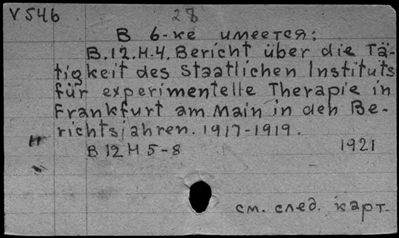 V 546
28
В б-ке имеется:
B.12.H.4. Bericht über die Tä-
tigkeit des Staatlichen Instituts
für experimentelle Therapie in
Frankfurt am Main in den Be-
richtsjahren. 1917-1919.
B 12 H 5-8 1921
см. след. карт.